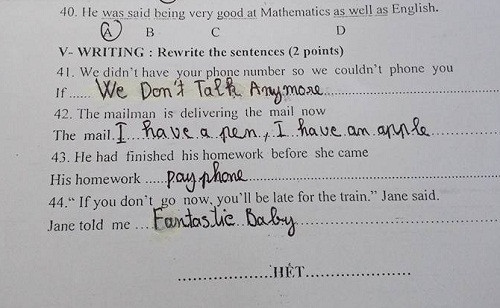 40. He was said being very good at Mathematics as well as English.
A B C D
V- WRITING : Rewrite the sentences (2 points)
41. We didn't have your phone number so we couldn't phone you
If ..... We Don't Talk Anymore.....
42. The mailman is delivering the mail now
The mail. I have a pen, I have an apple.....
43. He had finished his homework before she came
His homework ..... payphone.....
44." If you don't go now, you'll be late for the train." Jane said.
Jane told me .... Fantastic Baby.....
.....HẾT.....